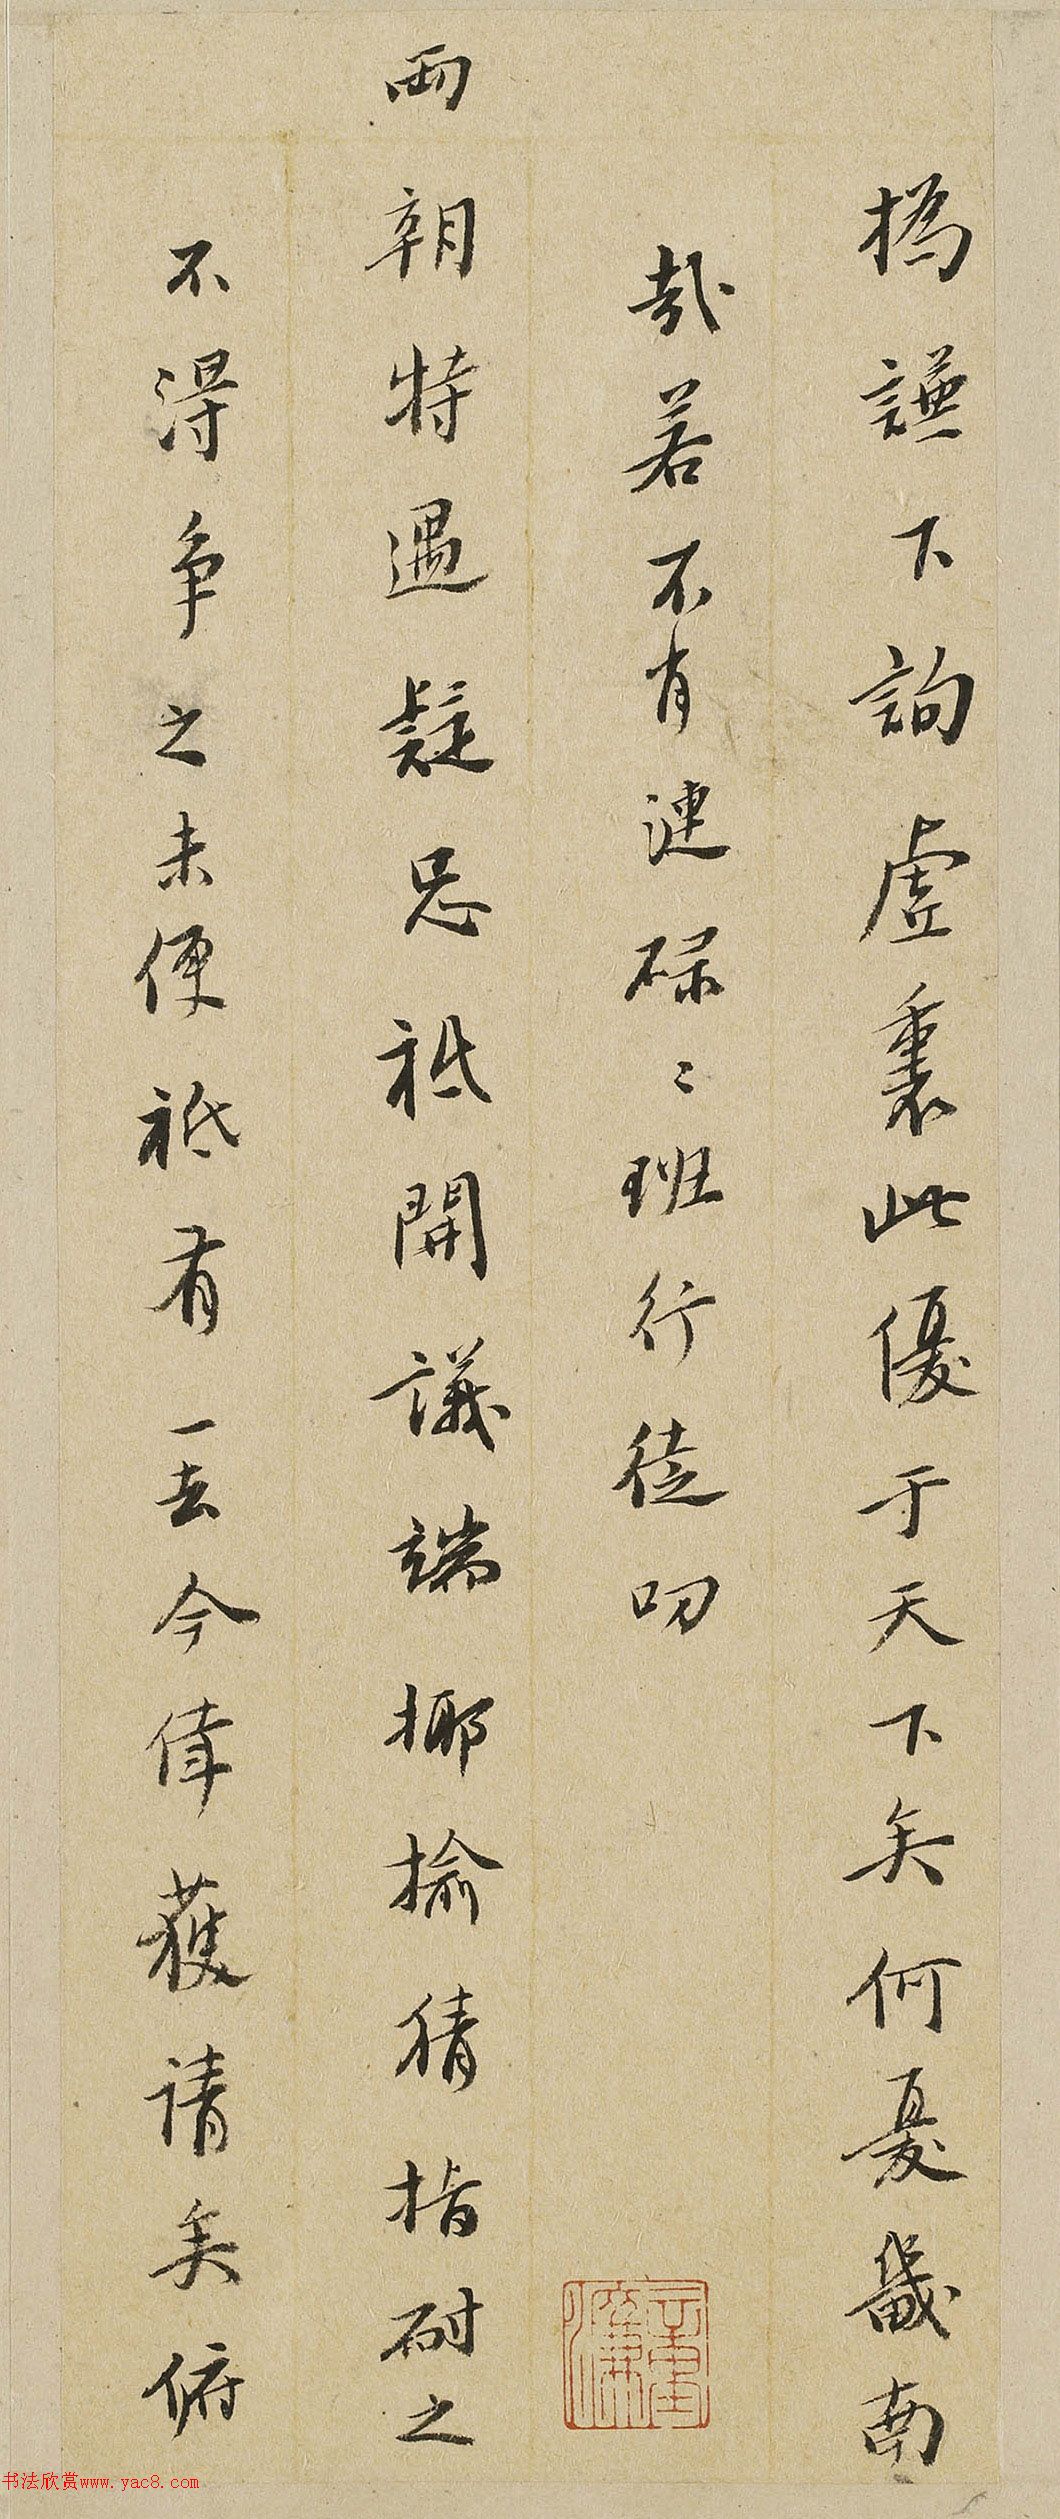 撝謙下詢虛裏此優于天下矣何憂畿南
哉若不肖連碌〻班行徒叨
兩朝特遇疑忌祇開議端揶揄猜指耐之
不得爭之未便祇有一去今倖獲請矣俯
书法欣赏www.yac8.com